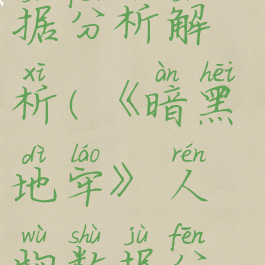 据分析解
xī àn hēi
析(《暗黑
dì láo rén
地牢》人
wù shù jù fēn
物数据分